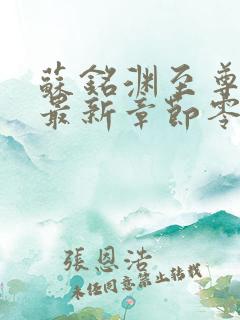 蘇銘渊至尊
最新章節零
張恩浩
未任同意禁止转載